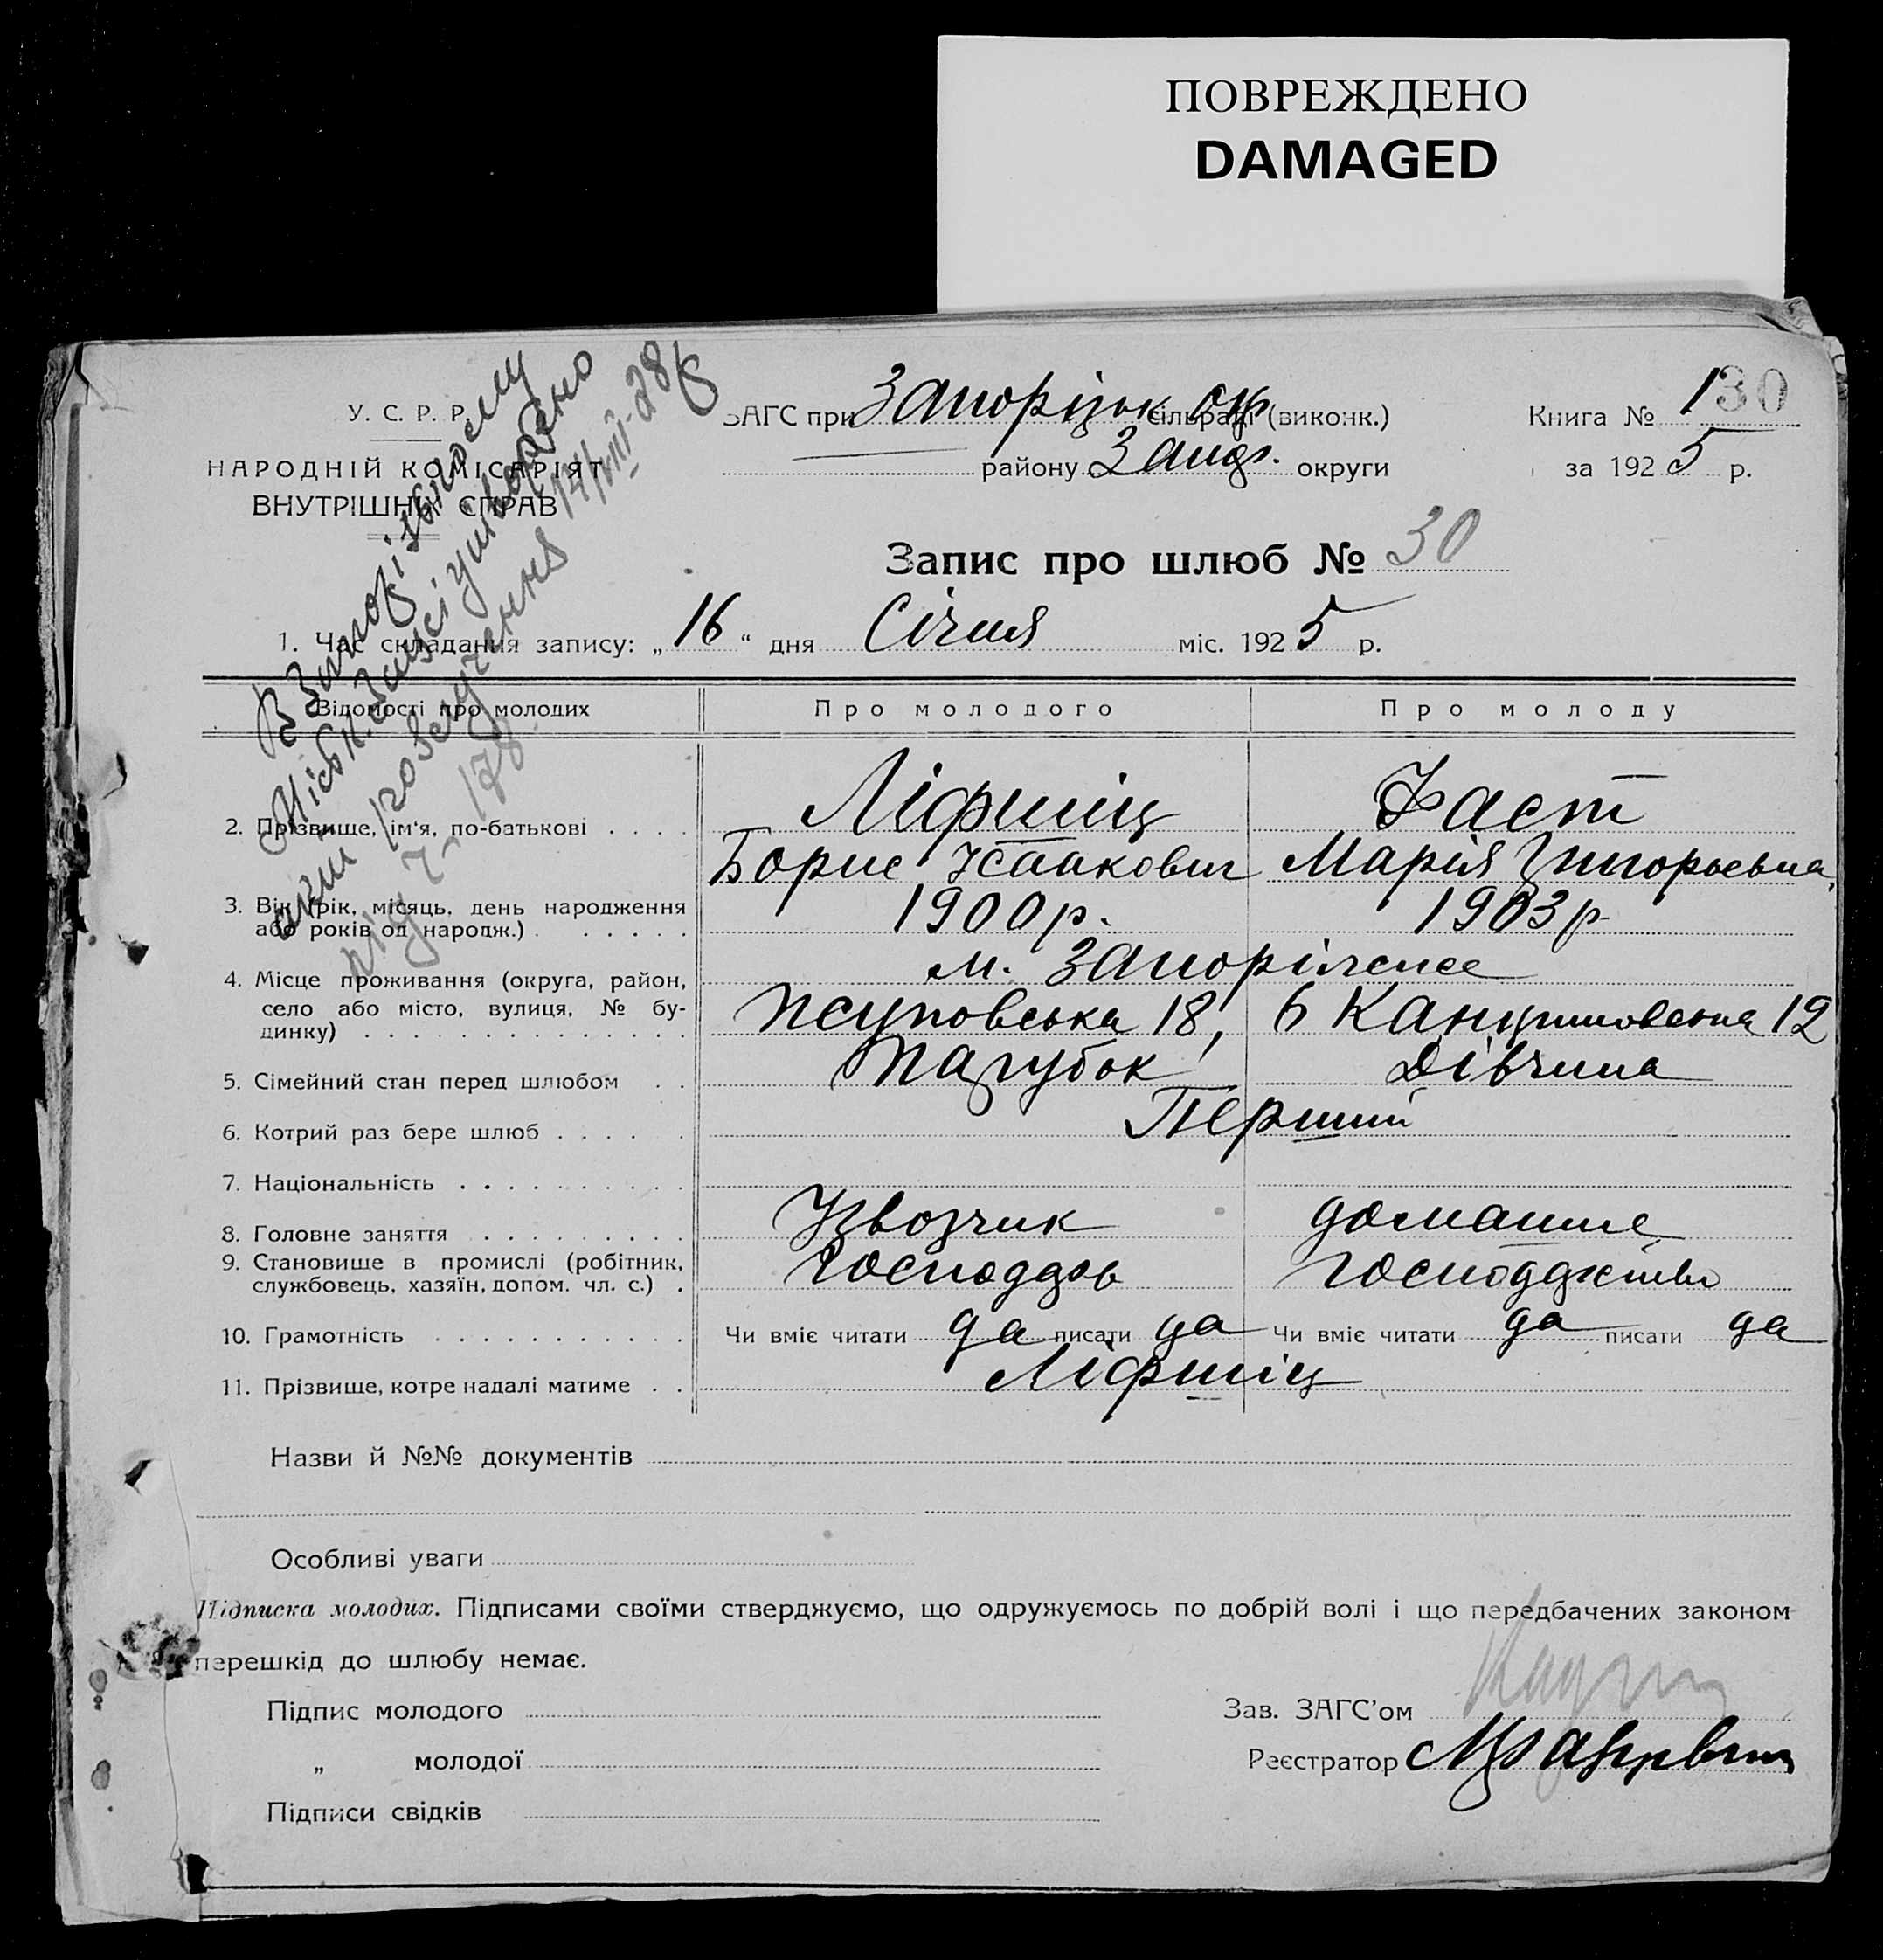 ПОВРЕЖДЕНО
DAMAGED
У. С. Р. Р.
НАРОДНІЙ КОМІСАРІЯТ
ВНУТРІШНІХ СПРАВ
ЗАГС при Запоріжськ окр сільраді (виконк.)
району Запор. округи
Книга № 1
30
за 1925 р.
Запис про шлюб № 30
1. Час складання запису: „16“ дня Січня міс. 1925 р.
14/VIII-28
178
Відомості про молодих
Про молодого
Про молоду
2. Прізвище, ім'я, по-батькові
Ліфшіц
Фаст
Борис Ісаакович
Марія Григорьевна
3. Вік (рік, місяць, день народження
або років од народж.)
1900р.
1903р
4. Місце проживання (округа, район,
село або місто, вулиця, № бу-
динку)
м. Запоріжже
18,
12
5. Сімейний стан перед шлюбом
Парубок
Дівчина
6. Котрий раз бере шлюб
Перший
7. Національність
8. Головне заняття
Ізвозчик
домашне
9. Становище в промислі (робітник,
службовець, хазяїн, допом. чл. с.)
Господарь
господарство
10. Грамотність
Чи вміє читати да писати да
Чи вміє читати да писати да
11. Прізвище, котре надалі матиме
Ліфшіц
Назви й №№ документів
Особливі уваги
Підписка молодих. Підписами своїми стверджуємо, що одружуємось по добрій волі і що передбачених законом
перешкід до шлюбу немає.
Підпис молодого
„ молодої
Підписи свідків
Зав. ЗАГС'ом
Реєстратор